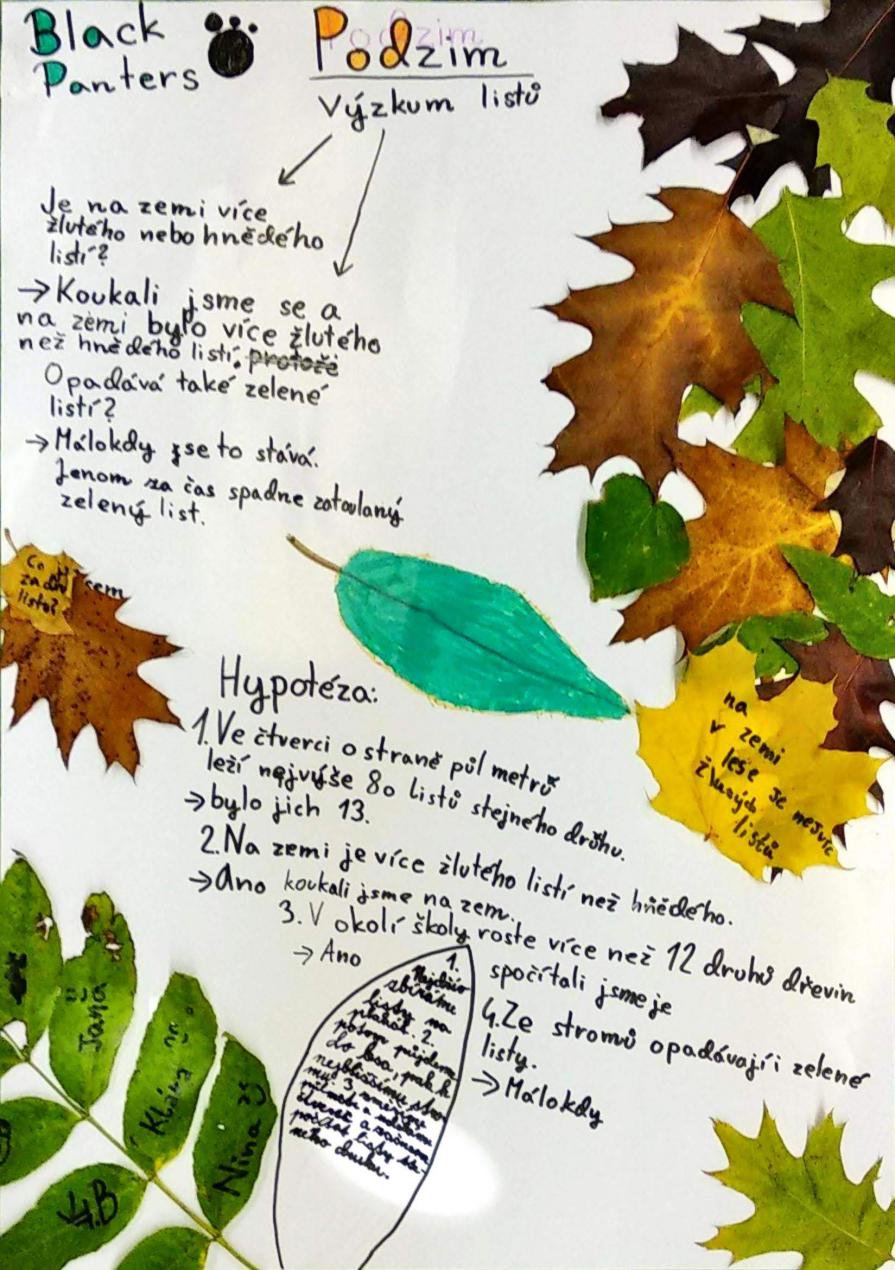 Black
Panters
Podzim
Podzim
Výzkum listů
Je na zemi více
žlutého nebo hnědého
listí?
→Koukali jsme se a
na zemi bylo více žlutého
než hnědého listí, protože
Opadává také zelené
listí?
→Málokdy se to stává.
Jenom za čas spadne
zelený list.
listů?
Hypotéza:
1. Ve čtverci o straně půl metrů
leží nejvýše 80 listů stejného drůhu.
→bylo jich 13.
2. Na zemi je více žlutého listí než hnědého.
→Ano koukali jsme na zem.
3. V okolí školy roste více než 12 druhů dřevin
→ Ano
spočítali jsme je
4. Ze stromů opadávají i zelené
listy.
→Málokdy
na
zemi
v lese je nejvíc
žlutých
listů
1.
Nejdříve
sbíráme
listy na
plakát. 2.
potom půjdeme
do lesa, pak k
nejbližšímu stro
mu. 3.
Jana
Klára
Nina
V.B